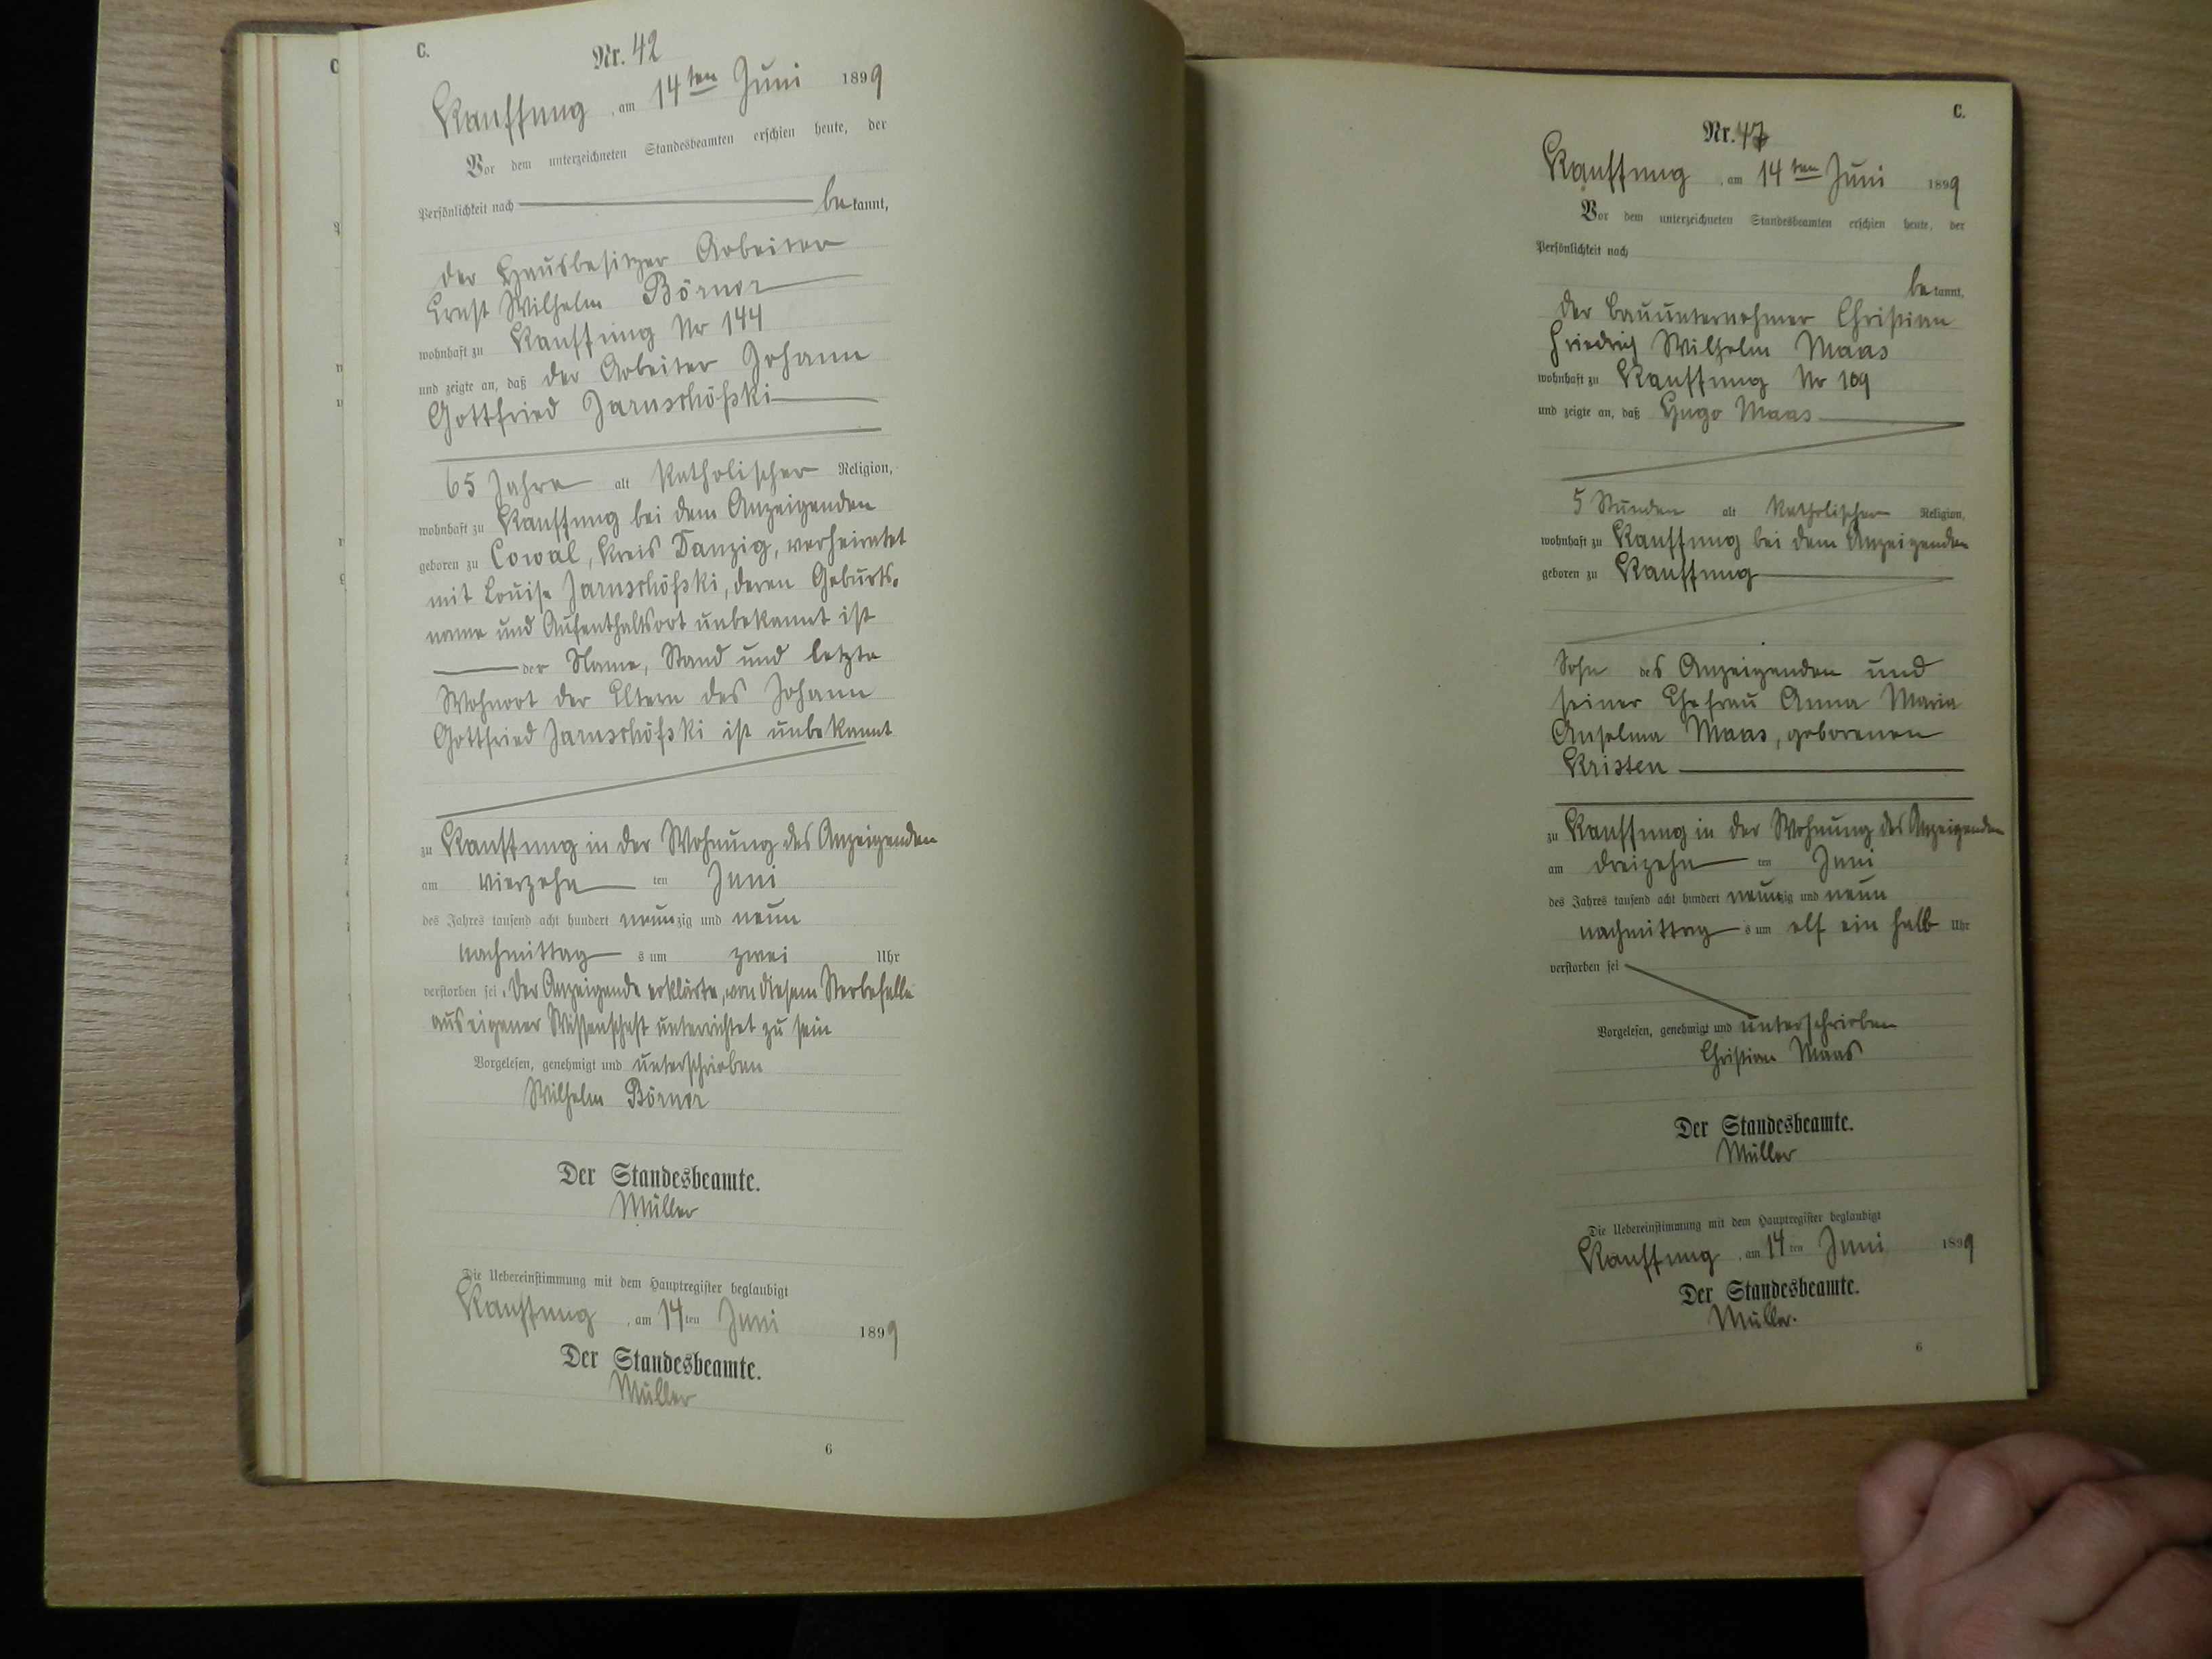 C.
Nr. 42
Kauffung, am 14ten Juni 1899
Vor dem unterzeichneten Standesbeamten erschien heute, der
Persönlichkeit nach bekannt,
der Hausbesitzer Arbeiter
Ernst Wilhelm Börner
wohnhaft zu Kauffung Nr 144
und zeigte an, daß der Arbeiter Johann
Gottfried
65 Jahre alt katholischer Religion,
wohnhaft zu Kauffung bei dem Anzeigenden
geboren zu Cowal, Kreis Danzig, verheiratet
mit Louise deren Geburts-
name und Aufenthaltsort unbekannt ist
der Name, Stand und letzte
Wohnort der Eltern des Johann
Gottfried ist unbekannt
zu Kauffung in der Wohnung des Anzeigenden
am vierzehnten Juni
des Jahres tausend acht hundert neunzig und neun
nachmittags um zwei Uhr
verstorben sei. Der Anzeigende erklärte, von diesem Sterbefalle
aus eigener Wissenschaft unterrichtet zu sein
Vorgelesen, genehmigt und unterschrieben
Wilhelm Börner
Der Standesbeamte.
Müller
Die Uebereinstimmung mit dem Hauptregister beglaubigt
Kauffung, am 14ten Juni 1899
Der Standesbeamte.
Müller
6
C.
Nr.
Kauffung, am 14ten Juni 1899
Vor dem unterzeichneten Standesbeamten erschien heute, der
Persönlichkeit nach
bekannt,
der Bauunternehmer Christian
Friedrich Wilhelm Maas
wohnhaft zu Kauffung Nr 109
und zeigte an, daß Hugo Maas
5 Stunden alt katholischer Religion,
wohnhaft zu Kauffung bei dem Anzeigenden
geboren zu Kauffung
Sohn des Anzeigenden und
seiner Ehefrau Anna Maria
Anselma Maas, geborenen
Kristen
zu Kauffung in der Wohnung des Anzeigenden
am dreizehnten Juni
des Jahres tausend acht hundert neunzig und neun
nachmittags um elf ein halb Uhr
verstorben sei
Vorgelesen, genehmigt und unterschrieben
Christian Maas
Der Standesbeamte.
Müller
Die Uebereinstimmung mit dem Hauptregister beglaubigt
Kauffung, am 14ten Juni 1899
Der Standesbeamte.
Müller.
6